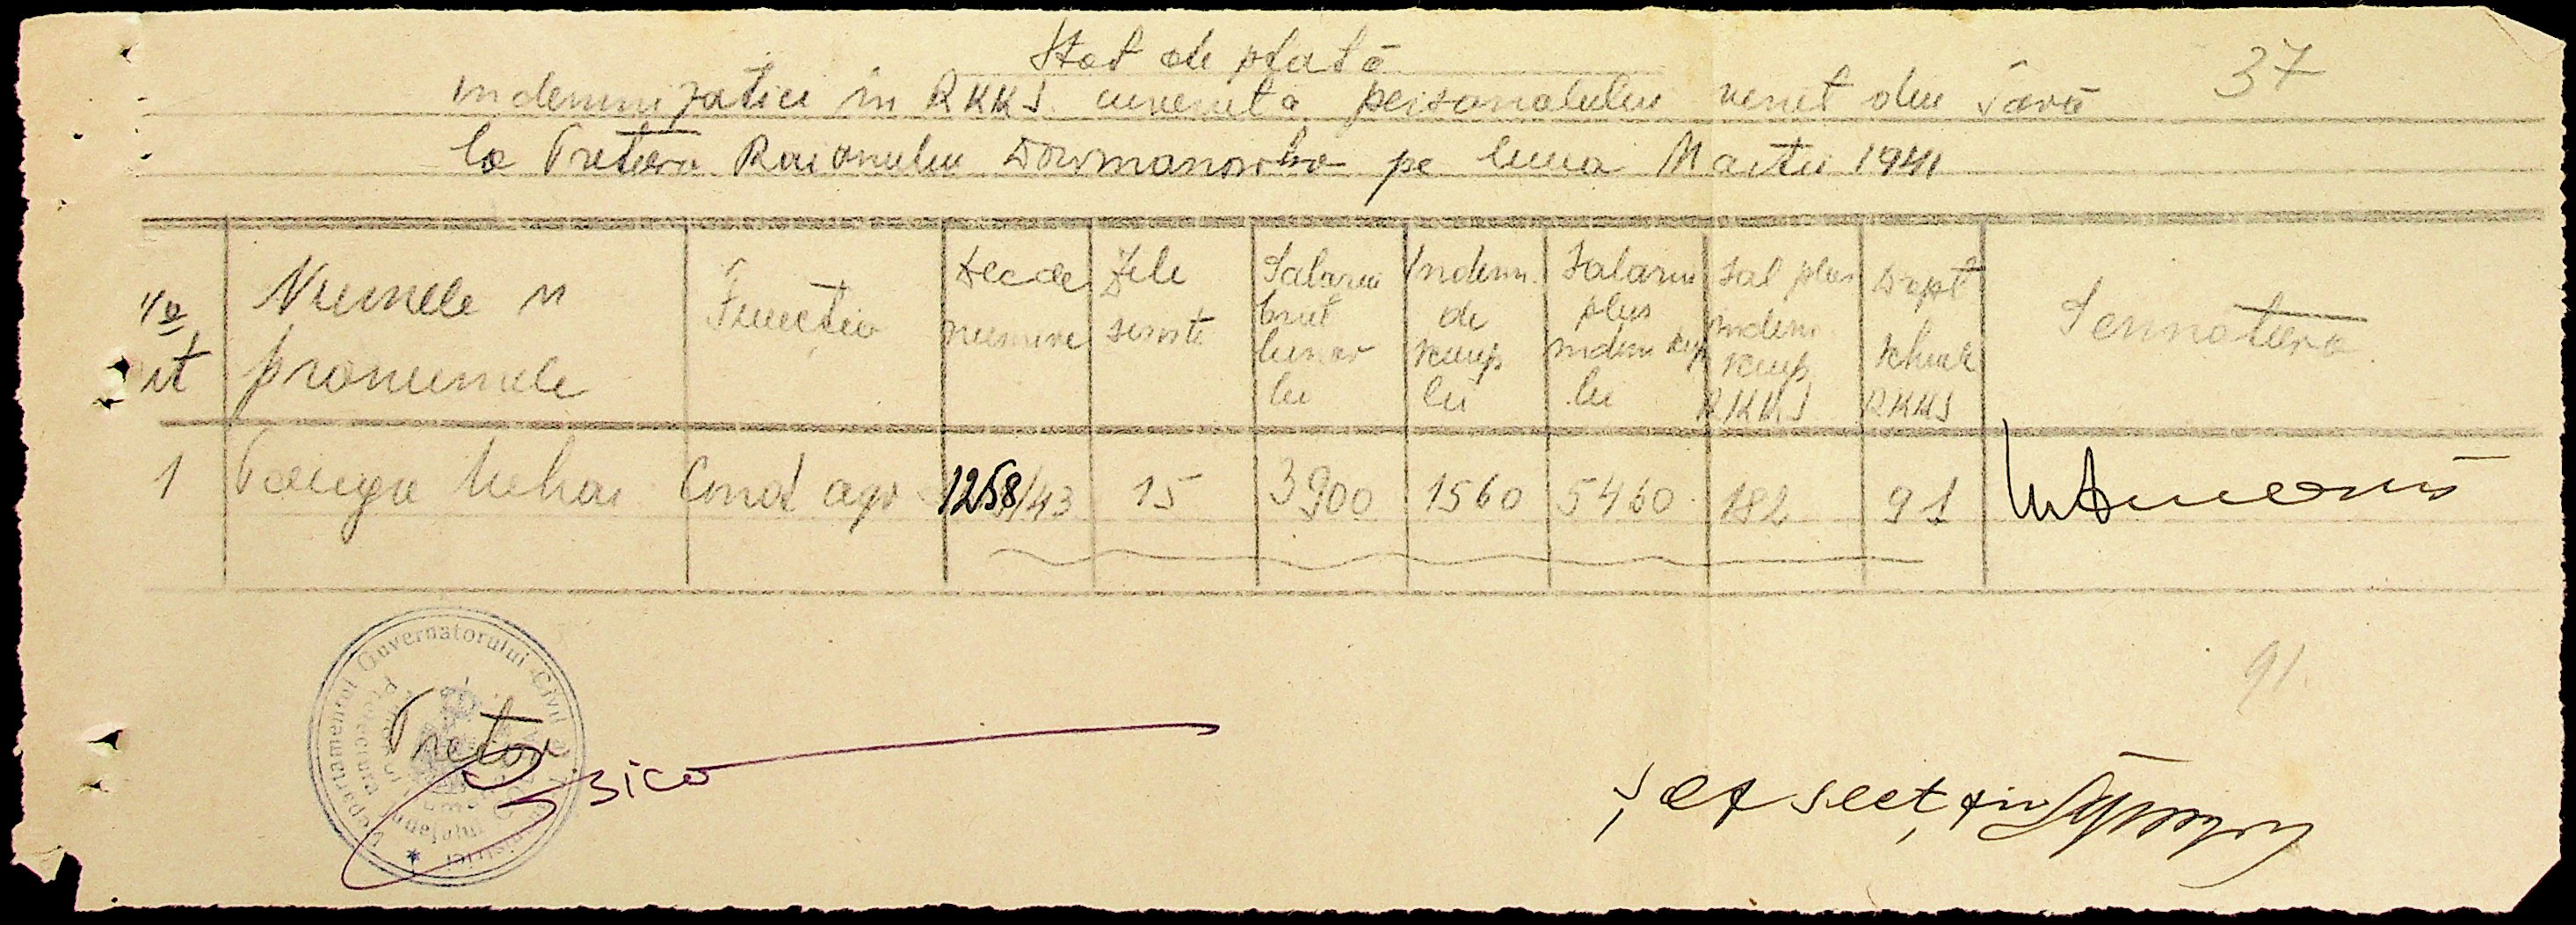 Stat de plată
37
indemnizatiei în RKKS cuvenită personalului venit din țară
la Pretura Raionului Dowmanowka pe luna Martie 1941
No
crt
Numele și
pronumele
Functia
Dec de
numire
Zile
servite
Salariu
brut
lunar
lei
Indemn.
de
scump
lei
Salariu
plus
indemn scump
lei
Sal plus
indemn
scump
RKKS
Drept
schimb
RKKS
Semnătura
1 Mihai Cond agr 1258/43 15 3900 1560 5460 182 91
91
Pretor
Departamentul Guvernatorului Civil al
Prefectura Județului
Șef secț fin